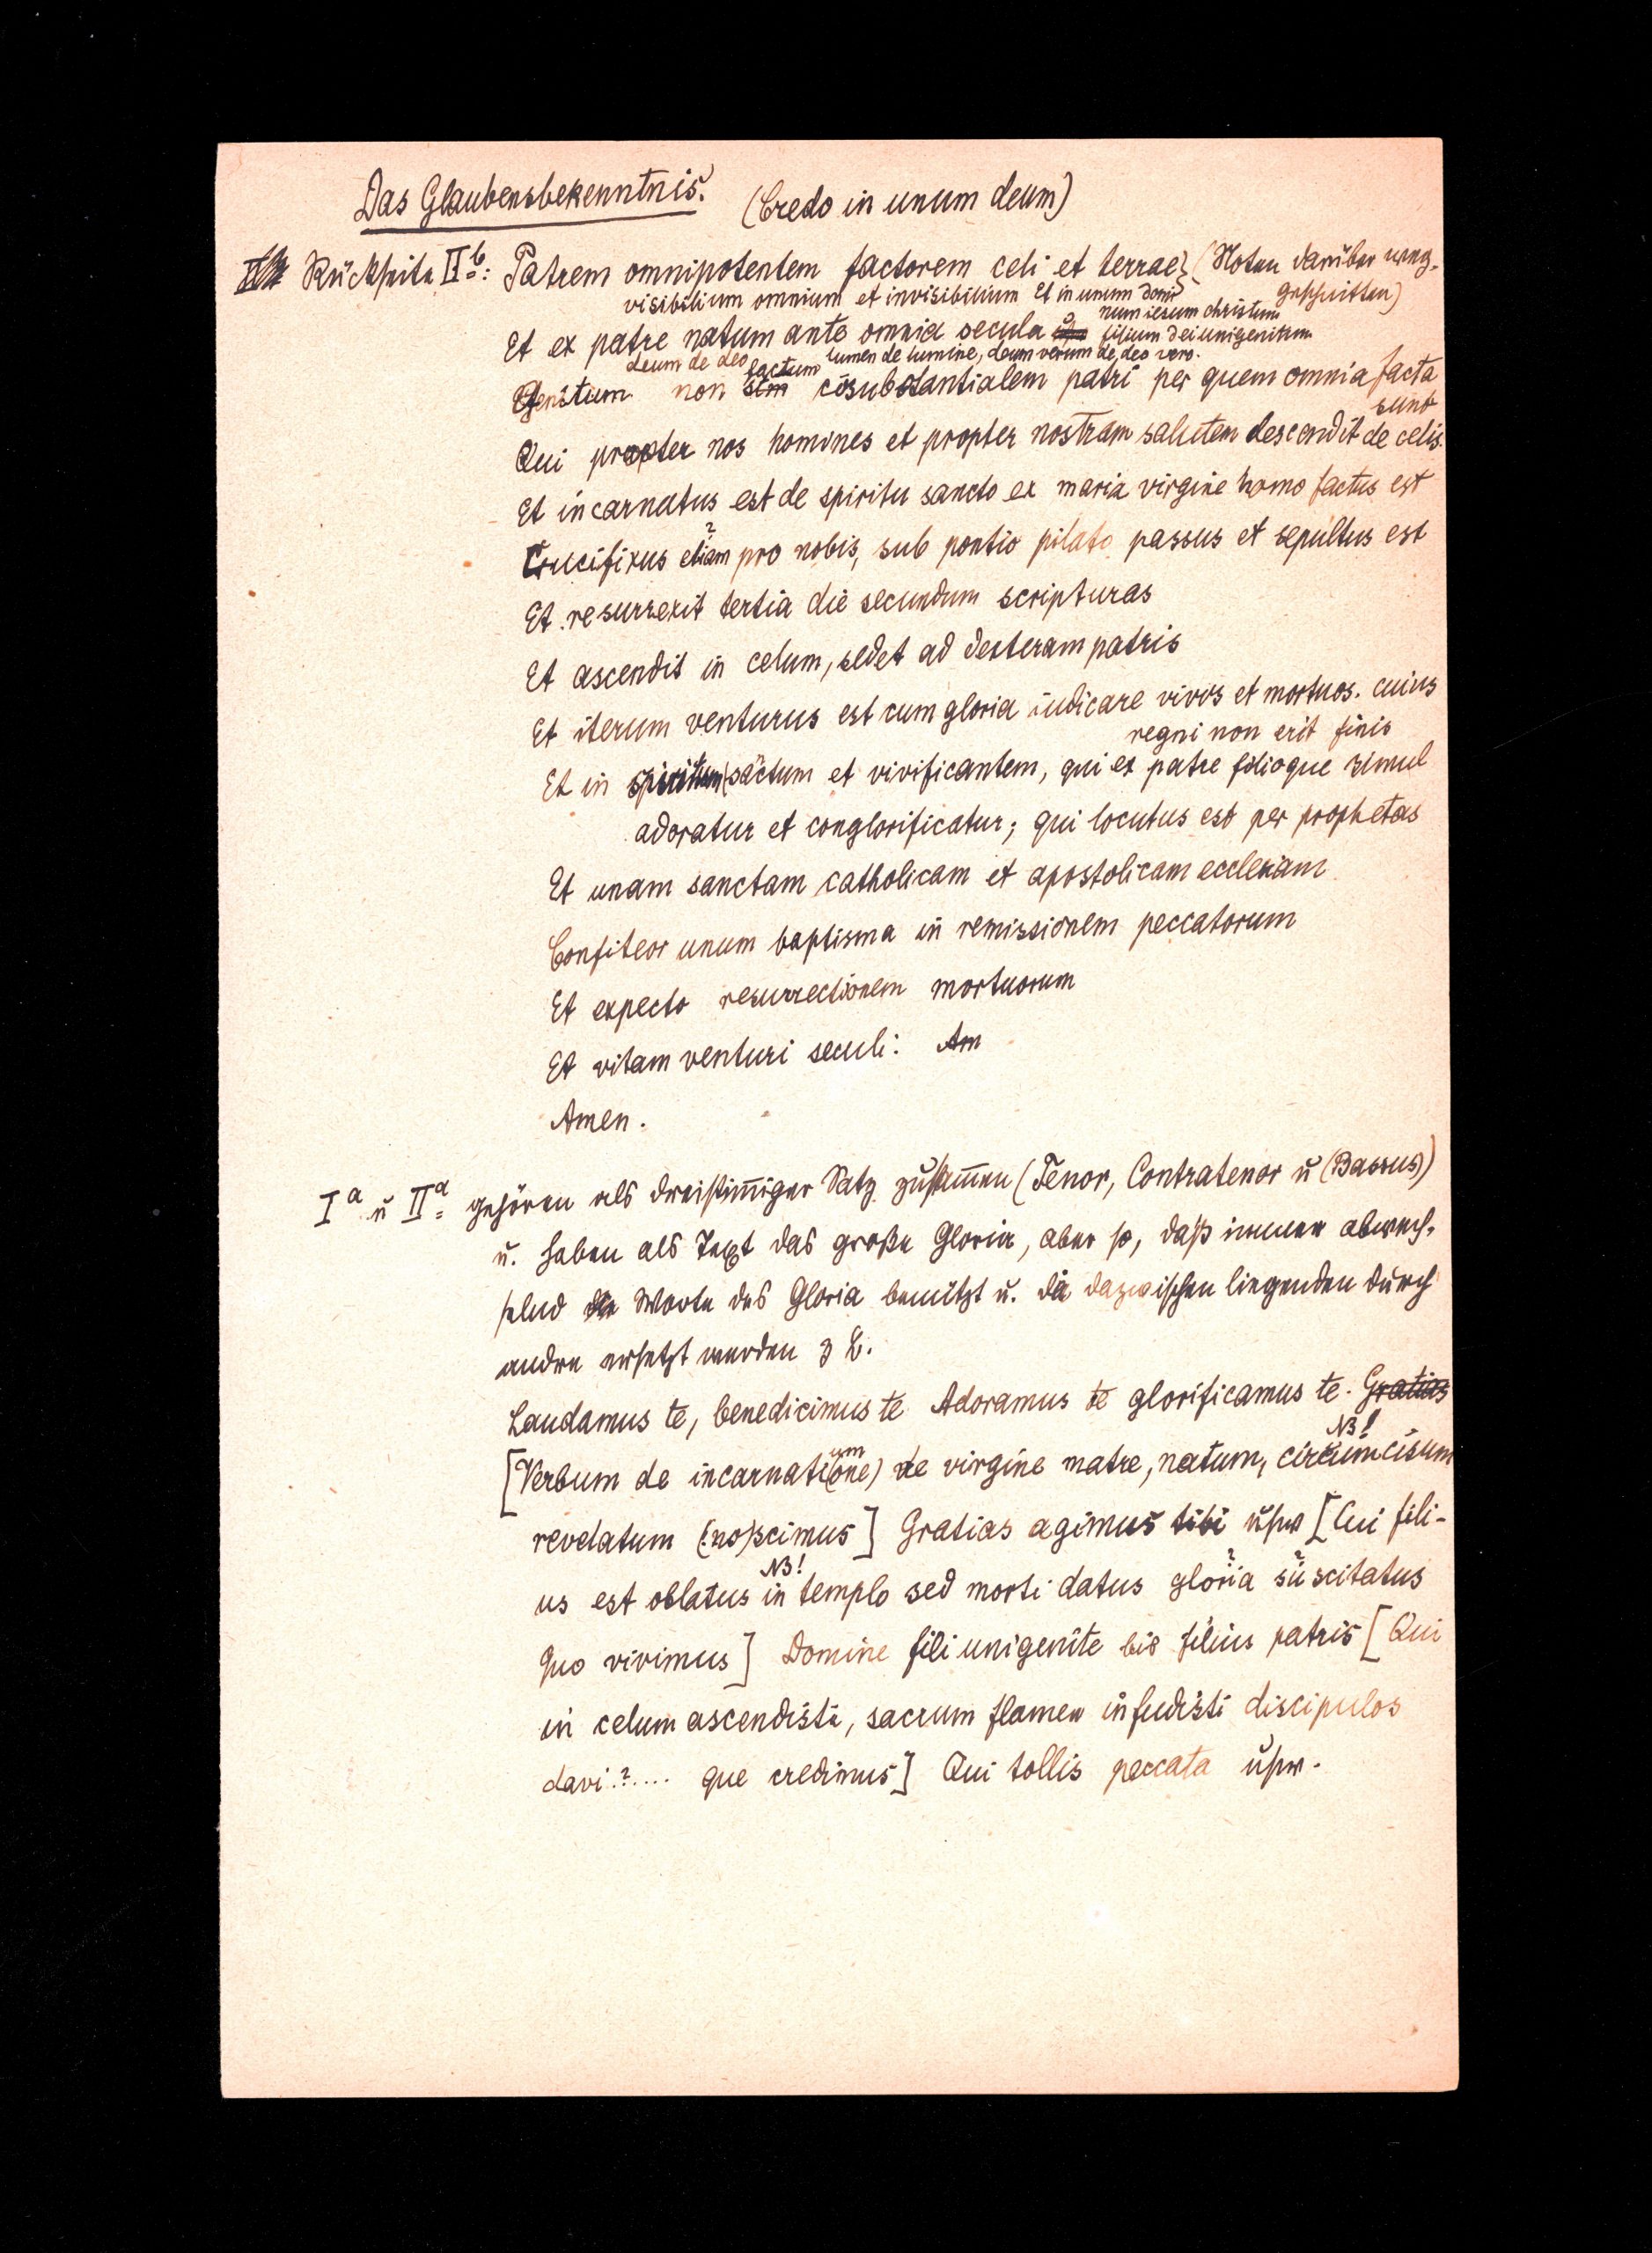 Das Glaubensbekenntnis. (Credo in unum deum)
Rückseite IIb: Patrem omnipotentem factorem celi et terrae} (Noten darüber weg-
visibilium omnium et invisibilium Et in unum domi geschnitten)
num iesum christum
Et ex patre natum ante omnia secula filium dei unigenitum
deum de deo lumen de lumine, deum verum de deo vero.
factum
Genitum non cōsubstantialem patri per quem omnia facta
sunt
Qui propter nos homines et propter nostram salutem descendit de celis.
Et incarnatus est de spiritu sancto ex maria virgine homo factus est
?
Crucifixus etiam pro nobis, sub pontio pilato passus et sepultus est
Et resurrexit tertia die secundum scripturas
Et ascendit in celum, sedet ad dexteram patris
Et iterum venturus est cum gloria iudicare vivos et mortuos. cuius
regni non erit finis
Et in spiritum sāctum et vivificantem, qui ex patre filioque simul
adoratur et conglorificatur; qui locutus est per prophetas
Et unam sanctam catholicam et apostolicam ecclesiam
Confiteor unum baptisma in remissionem peccatorum
Et expecto resurrectionem mortuorum
Et vitam venturi seculi: Am
Amen.
Ia u IIa gehören als dreistim̄iger Satz zusam̄en (Tenor, Contratenor u (Bassus))
u. haben als Text das große Gloria, aber so, daß immer abwech-
selnd die Worte des Gloria benützt u. die dazwischen liegenden durch
andre ersetzt werden z B.
Laudamus te, benedicimus te Adoramus te glorificamus te. Gratias
um NB!
[Verbum de incarnati(one) de virgine matre, natum, circumcisum
revelatum (no)scimus] Gratias agimus tibi usw [Cui fili-
NB! ? ?
us est oblatus in templo sed morti datus gloria suscitatus
quo vivimus] Domine fili unigenite bis filius patris [Qui
in celum ascendisti, sacrum flamen infudisti discipulos
davi.?.... que credimus] Qui tollis peccata usw.